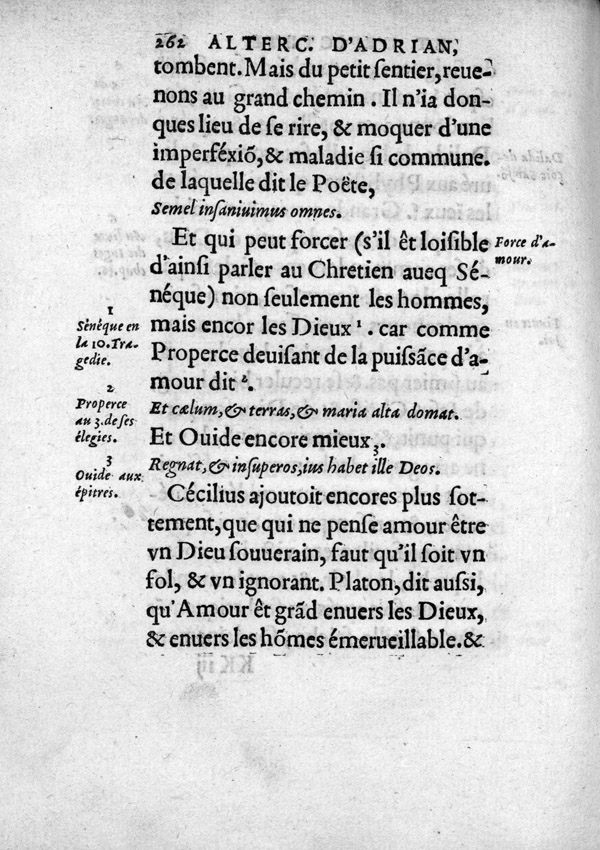 262 ALTERC. D'ADRIAN,
tombent. Mais du petit ſentier, reue-
nons au grand chemin. Il n'ia don-
ques lieu de ſe rire, & moquer d'vne
imperféxiõ, & maladie ſi commune.
de laquelle dit le Poëte,
Semel inſaniuimus omnes.
Et qui peut forcer (s'il êt loiſible
d'ainſi parler au Chretien aueq Sé-
néque) non ſeulement les hommes,
mais encor les Dieux 1. car comme
Properce deuiſant de la puiſsãce d'a-
mour dit 2.
Et cælum, & terras, & maria alta domat.
Et Ouide encore mieux 3.
Regnat, & inſuperos, ius habet ille Deos.
Cécilius ajoutoit encores plus ſot-
tement, que qui ne penſe amour être
vn Dieu ſouuerain, faut qu'il ſoit vn
fol, & vn ignorant. Platon, dit auſſi,
qu'Amour êt grãd enuers les Dieux,
& enuers les hõmes émerueillable. &
Force d'a-
mour.
1
Sénèque en
la 10. Tra-
gedie.
2
Properce
au 3. de ſes
élegies.
3
Ouide aux
épitres.